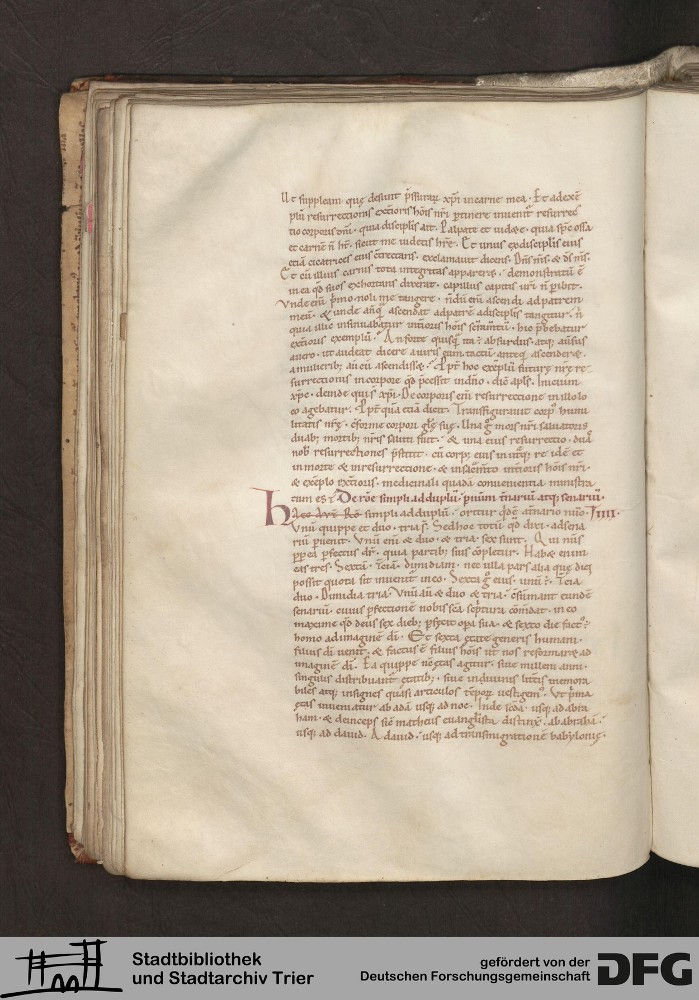 Ut suppleam quę desunt p̄ssurarū xp̄i in carne mea. Et ad exē
plū resurrectionis ext̄ioris hoīs nr̄i ptinere inuenit̄ resurrec
tio corporis dn̄i. quia discipliṡ ait. Palpate et uidete. quia sp̄c ossa
et carnē n̄ ht̄. sicut me uidetis hr̄e. Et unus ex discipliṡ eius
etiā cicatrices eius c̄trectans. exclamauit dicens. Dn̄s ms̄. & ds̄ ms̄.
Et cū illius carnis tota integritas appareret. demonstratū ē
in ea qd̄ suos exhortans dixerat. capillus capitis ur̄i n̄ pibit.
Unde enī p̄mo. noli me tangere. ndū enī ascendi ad patrem
meū. & unde anq̄ ascendat ad patrē a discipliṡ tangitur. n̄
quia illic insinuabatur int̄ioris hoīs sacramtū. hic p̄bebatur
ext̄ioris exemplū. An forte quisq̄ ita absurdus. atq; auersus
a uero. ut audeat dicere a uiris eum tactū anteq̄ ascenderet.
a mulierib; aū cū ascendisset. Ppt̄ hoc exēplū futurę nrę re
surrectionis in corpore qd̄ p̄cessit in dn̄o. dic̄ apl̄s. Inicium
xp̄c. deinde qui st̄ xp̄i. De corporis enī resurrectione in illo lo
co agebatur. Ppt̄ quā etiā dicit. Transfigurauit corp; humi
litatis nrę. c̄forme corpori glę suę. Una g̊ mors nr̄i saluatoris
duab; mortib; nr̄is saluti fuit. & una eius resurrectio. duas
nob̄ resurrectiones p̄stitit. cū corp; eius in utq; re id ē et
in morte & in resurrectione. & in sacram̄to int̄ioris hoīs nr̄i.
& exēplo ext̄ioris. medicinali quadā conuenientia ministra
tum est. De rōe simpli ad duplū. p̄mum t̄nariū atq; senariū.
Hęc aū rō simpli ad duplū. oritur qdē a t̄nario nūo. IIII.
Unū quippe et duo. tria st̄. Sed hoc totū qd̄ dixi. ad sena
riū puenit. Unū enī & duo. & tria. sex sunt. Qui nūs
ppea pfectus dr̄. quia partib; suis c̄pletur. Habet enim
eas tres. Sextā. t̄ciā. dimidiam. nec ulla pars alia quę dici
possit quota sit inuenit̄ in eo. Sexta g̊ eius. unū ē. T̄cia
duo. Dimidia tria. Unū aū & duo & tria. c̄sumant eundē
senariū. cuius pfectionē nobis scā sc̄ptura com̄dat. in eo
maxime qd̄ deus sex dieb; pfecit opa sua. & sexto die fact;
homo ad imaginē di. Et sexta ętate generis humani.
filius di uenit. & factus ē filius hoīs ut nos reformaret ad
imaginē di. Ea quippe n̄c ętas agitur. siue milleni anni.
singulis distribuant̄ ętatib;. siue in diuinis litt̄is memora
biles atq; insignes quasi articulos tēpor̄ uestigem;. Ut p̄ma
ętas inueniatur ab adā usq; ad noe. Inde scd̄a. usq; ad abra
ham. & deinceps sic̄ matheus euanglista distinx̄. ab abrahā.
usq; ad dauid. A dauid. usq; ad transmigrationē babylonię.
Stadtbibliothek
und Stadtarchiv Trier
gefördert von der
Deutschen Forschungsgemeinschaft
DFG